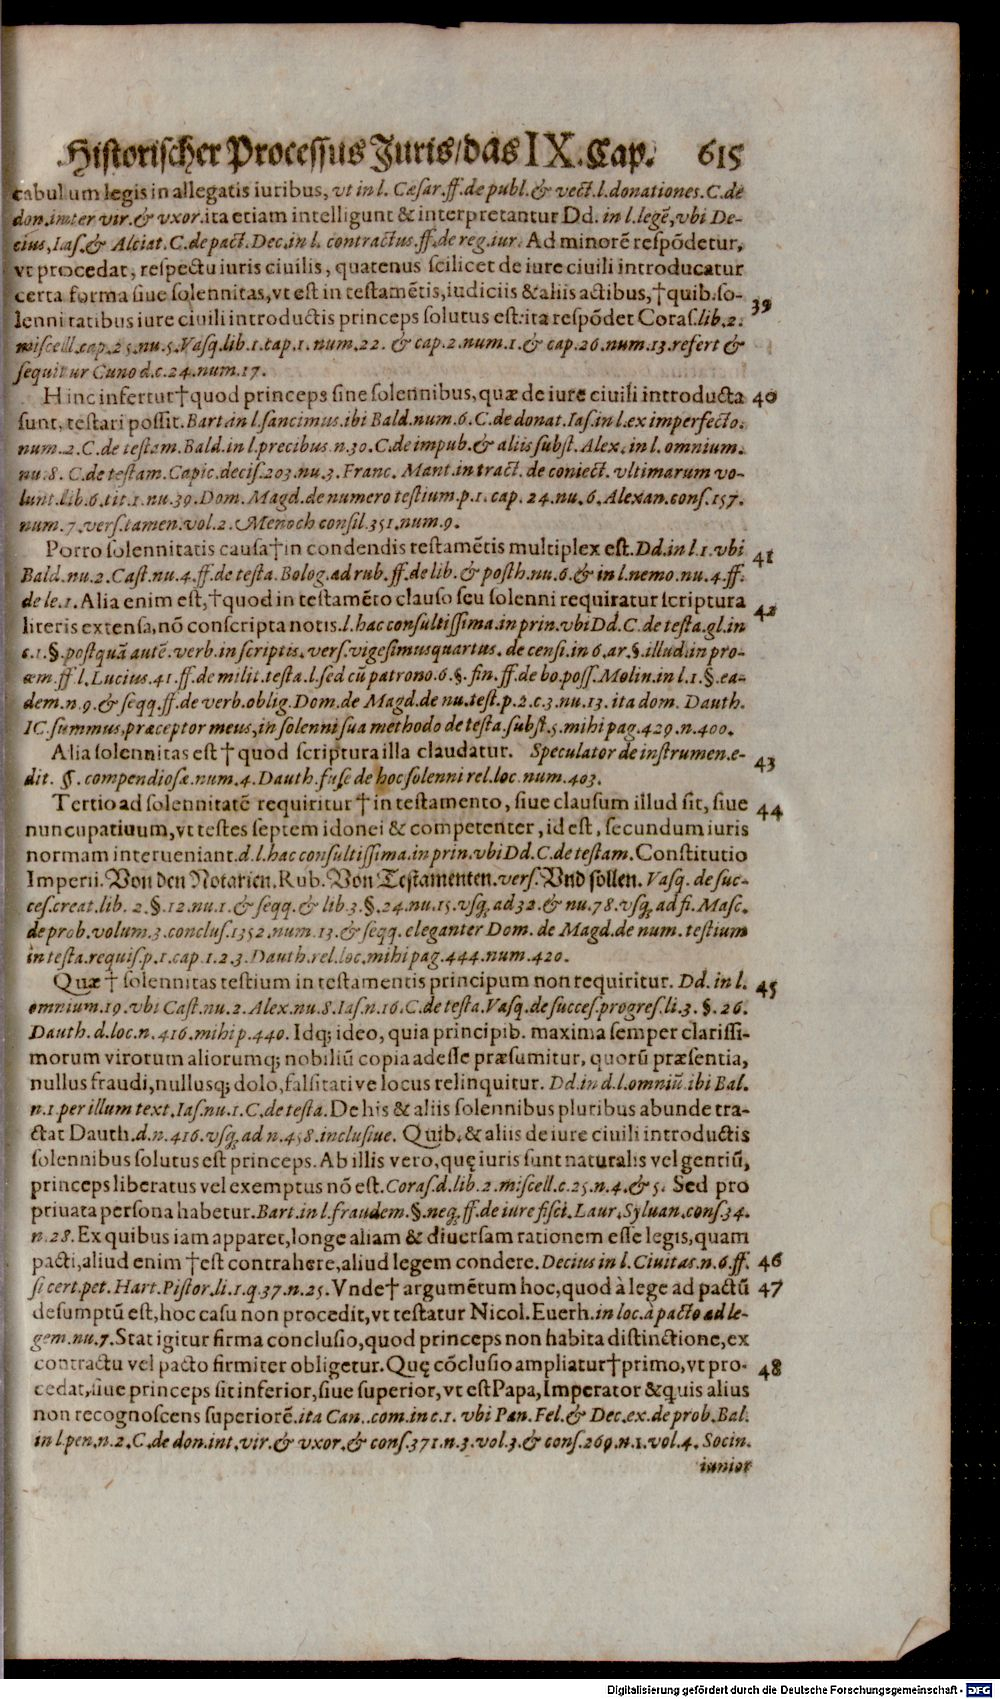 Historischer Processus Juris/das IX. Cap. 615
cabulum legis in allegatis iuribus, vt in l. Cæsar. ff. de publ. & vect. l. donationes. C. de
don. inter vir. & vxor. ita etiam intelligunt & interpretantur Dd. in l. legē, vbi De-
cius, Ias. & Alciat. C. de pact. Dec. in l. contractus. ff. de reg. iur. Ad minorē respōdetur,
vt procedat, respectu iuris ciuilis, quatenus scilicet de iure ciuili introducatur
certa forma siue solennitas, vt est in testamētis, iudiciis & aliis actibus, † quib. so- 39
lennitatibus iure ciuili introductis princeps solutus est: ita respōdet Coras. lib. 2.
miscell. cap. 25. nu. 5. Vasq. lib. 1. cap. 1. num. 22. & cap. 2. num. 1. & cap. 26. num. 13. refert &
sequitur Cuno d. c. 24. num. 17.
Hinc infertur † quod princeps sine solennibus, quæ de iure ciuili introducta 40
sunt, testari possit. Bart. in l. sancimus. ibi Bald. num. 6. C. de donat. Ias. in l. ex imperfecto.
num. 2. C. de testam. Bald. in l. precibus. n. 30. C. de impub. & aliis subst. Alex. in l. omnium.
nu. 8. C. de testam. Capic. decis. 203. nu. 3. Franc. Mant. in tract. de coniect. vltimarum vo-
lunt. lib. 6. tit. 1. nu. 39. Dom. Magd. de numero testium. p. 1. cap. 24. nu. 6. Alexan. cons. 157.
num. 7. vers. tamen. vol. 2. Menoch consil. 351. num. 9.
Porro solennitatis causa † in condendis testamētis multiplex est. Dd. in l. 1. vbi 41
Bald. nu. 2. Cast. nu. 4. ff. de testa. Bolog. ad rub. ff. de lib. & posth. nu. 6. & in l. nemo. nu. 4. ff.
de le. 1. Alia enim est, † quod in testamēto clauso seu solenni requiratur scriptura 42
literis extensa, nō conscripta notis. l. hac consultissima. in prin. vbi Dd. C. de testa. gl. in
c. 1. §. postquā autē. verb. in scriptis. vers. vigesimusquartus. de censi. in 6. ar. §. illud. in pro-
æm. ff. l. Lucius. 41. ff. de milit. testa. l. sed cū patrono. 6. §. fin. ff. de bo. poss. Molin. in l. 1. §. ea-
dem. n. 9. & seqq. ff. de verb. oblig. Dom. de Magd. de nu. test. p. 2. c. 3. nu. 13. ita dom. Dauth.
IC. summus, præceptor meus, in solenni sua methodo de testa. subst. 5. mihi pag. 429. n. 400.
Alia solennitas est † quod scriptura illa claudatur. Speculator de instrumen. e- 43
dit. §. compendiosæ. num. 4. Dauth. fuse de hoc solenni rel. loc. num. 403.
Tertio ad solennitatē requiritur † in testamento, siue clausum illud sit, siue 44
nuncupatiuum, vt testes septem idonei & competenter, id est, secundum iuris
normam interueniant. d. l. hac consultissima. in prin. vbi Dd. C. de testam. Constitutio
Imperii. Von den Notarien. Rub. Von Testamenten. vers. Vnd sollen. Vasq. de suc-
ces. creat. lib. 2. §. 12. nu. 1. & seqq. & lib. 3. §. 24. nu. 15. vsq; ad 32. & nu. 78. vsq; ad fi. Masc.
de prob. volum. 3. conclus. 1352. num. 13. & seqq. eleganter Dom. de Magd. de num. testium
in testa. requis. p. 1. cap. 1. 2. 3. Dauth. rel. loc. mihi pag. 444. num. 420.
Quæ † solennitas testium in testamentis principum non requiritur. Dd. in l. 45
omnium. 19. vbi Cast. nu. 2. Alex. nu. 8. Ias. n. 16. C. de testa. Vasq. de succes. progres. li. 3. §. 26.
Dauth. d. loc. n. 416. mihi p. 440. Idq; ideo, quia principib. maxima semper clarissi-
morum virorum aliorumq; nobiliū copia adesse præsumitur, quorū præsentia,
nullus fraudi, nullusq; dolo, falsitati ve locus relinquitur. Dd. in d. l. omniū. ibi Bal.
n. 1. per illum text. Ias. nu. 1. C. de testa. De his & aliis solennibus pluribus abunde tra-
ctat Dauth. d. n. 416. vsq; ad n. 458. inclusiue. Quib. & aliis de iure ciuili introductis
solennibus solutus est princeps. Ab illis vero, quę iuris sunt naturalis vel gentiū,
princeps liberatus vel exemptus nō est. Coras. d. lib. 2. miscell. c. 25. n. 4. & 5. Sed pro
priuata persona habetur. Bart. in l. fraudem. §. neq; ff. de iure fisci. Laur. Syluan. cons. 34.
n. 28. Ex quibus iam apparet, longe aliam & diuersam rationem esse legis, quam
pacti, aliud enim † est contrahere, aliud legem condere. Decius in l. Ciuitas. n. 6. ff. 46
si cert. pet. Hart. Pistor. li. 1. q. 37. n. 25. Vnde † argumētum hoc, quod à lege ad pactū 47
desumptū est, hoc casu non procedit, vt testatur Nicol. Euerh. in loc. à pacto ad le-
gem. nu. 7. Stat igitur firma conclusio, quod princeps non habita distinctione, ex
contractu vel pacto firmiter obligetur. Quę cōclusio ampliatur † primo, vt pro- 48
cedat, siue princeps sit inferior, siue superior, vt est Papa, Imperator & quis alius
non recognoscens superiorē. ita Can. com. in c. 1. vbi Pan. Fel. & Dec. ex. de prob. Bal.
in l. pen. n. 2. C. de don. int. vir. & vxor. & cons. 371. n. 3. vol. 3. & cons. 269. n. 1. vol. 4. Socin.
iunior
Digitalisierung gefördert durch die Deutsche Forschungsgemeinschaft - DFG